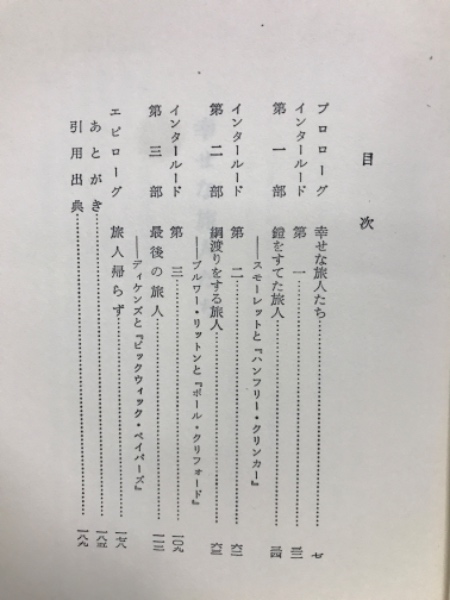 目次
プロローグ 幸せな旅人たち………七
インタールード 第一………三三
第一部 鎧をすてた旅人………三四
――スモーレットと『ハンフリー・クリンカー』
インタールード 第二………六二
第二部 綱渡りをする旅人………六三
――ブルワー・リットンと『ポール・クリフォード』
インタールード 第三………一〇九
第三部 最後の旅人………一一二
――ディケンズと『ピックウィック・ペイパーズ』
エピローグ 旅人帰らず………一七八
あとがき………一八五
引用出典………一八九